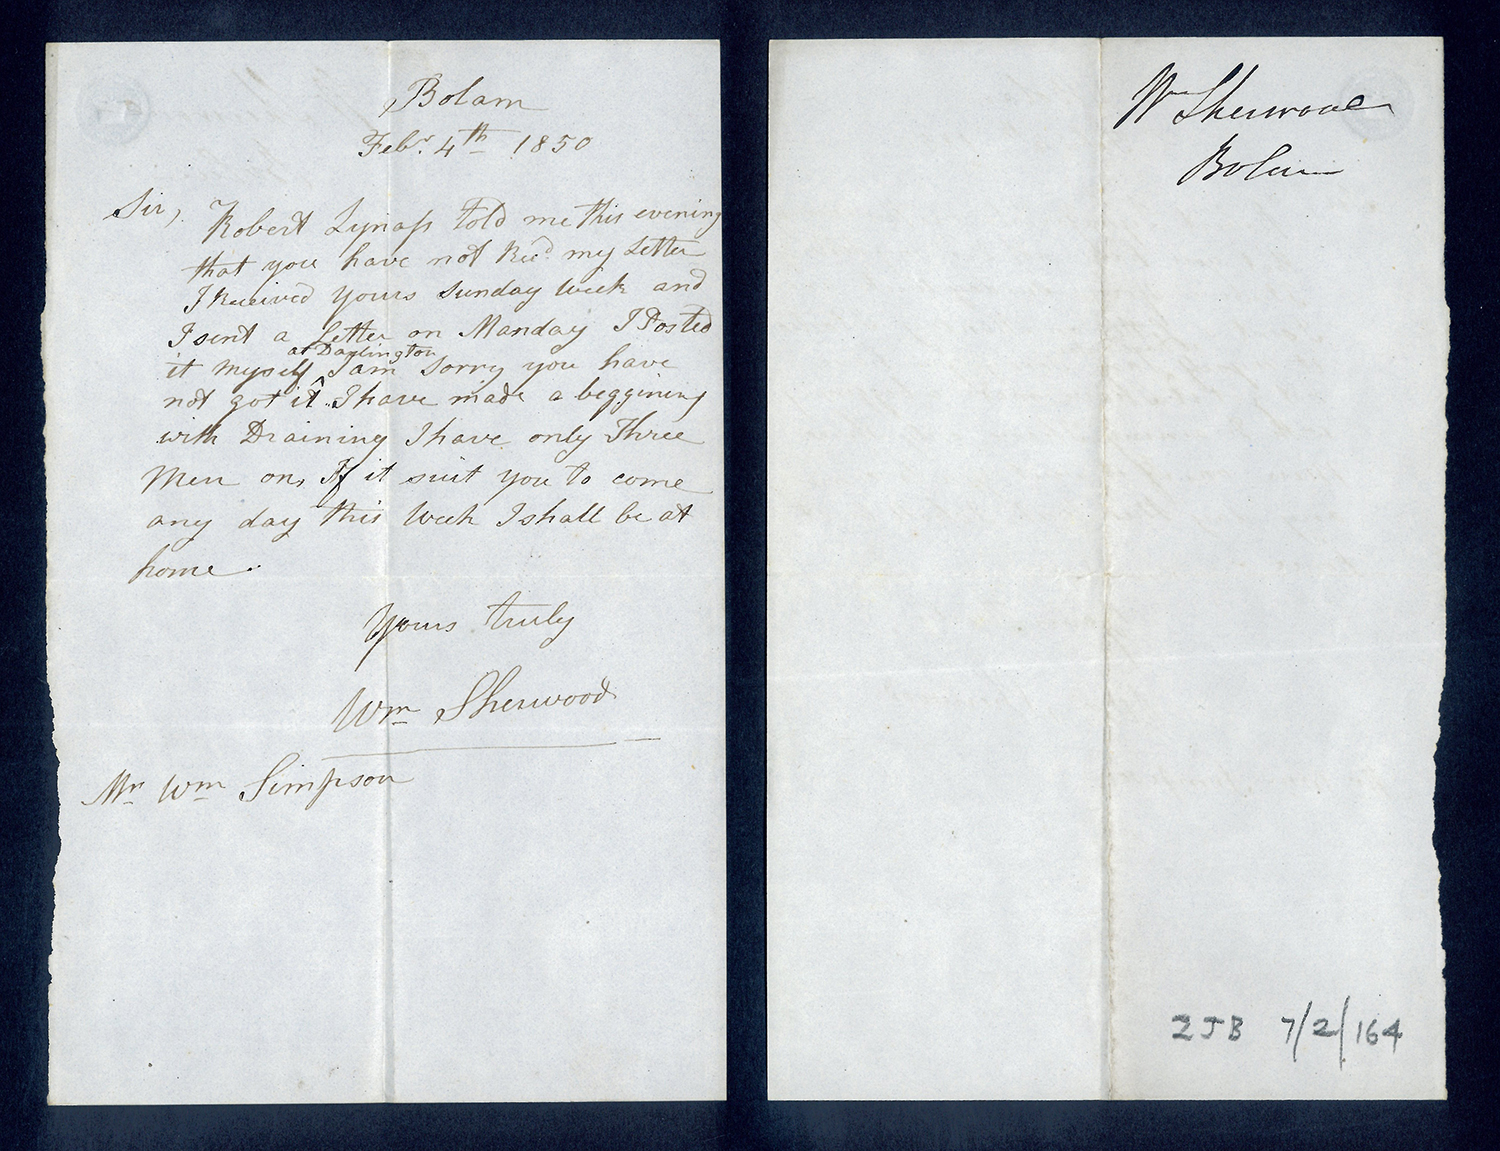 Bolam
Febr. 4th 1850
Sir, Robert Lynass told me this evening
that you have not Recd. my Letter
I Received yours Sunday Week and
I sent a Letter on Manday I Posted
at Darlington
it myself I am Sorry you have
not got it ^. I have made a beggining
with Draining I have only Three
Men on, If it suit you to come
any day this Week I shall be at
home.
Yours truly
Wm Sherwood
Mr Wm Simpson
Wm Sherwood
Bolam
ZJB 7/2/164